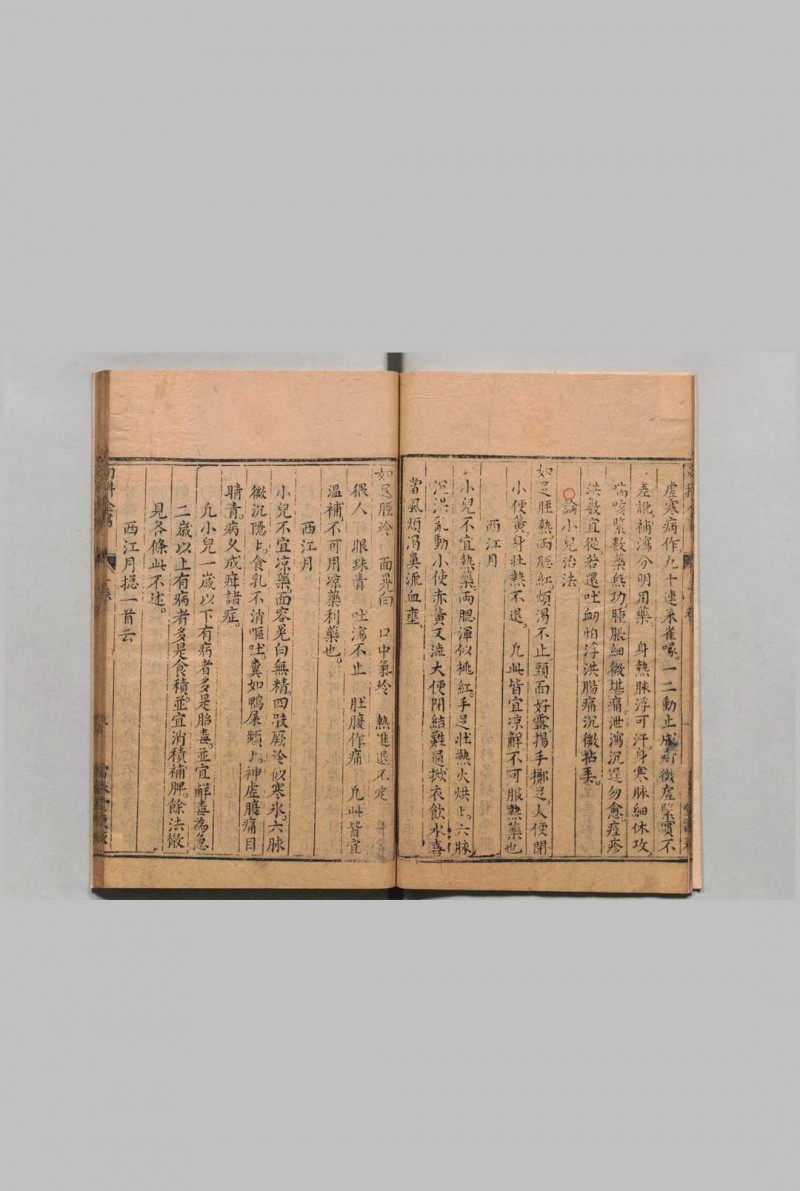 虛寒病作九十連來雀啄一二動止成 微虛緊實不
差訛補瀉分明用藥 身熱脉浮可汗身寒脉細休攻
喘咳緊數藥無功腫脹細微堪痛泄瀉沉遲勿愈痘疹
洪数宜從若還吐衂怕浮洪腸痛沉微拈弄
論小兒治法
如足脛熱两腮紅煩渴不止頭面好露揚手擲足大便閉
小便黄身壯熱不退 凡此皆宜凉解不可服熱藥也
西江月
小兒不宜熱藥两腮渾似桃紅手足壯熱火烘上六脉
沉洪亂動小便赤黄又澁大便閉結難通掀衣飲水喜
當風煩渴鼻流血壅
如足脛冷 面㿠白 口中氣冷 熱進退不定
恨人 眼珠青 吐瀉不止 肚腹作痛 凡此皆宜
温補不可用凉藥利藥也
西江月
小兒不宜凉藥面容㿠白無精四肢厥冷似寒氷六脉
微沉隱上食乳不消嘔吐糞如鴨屎頻上神虛腹痛目
睛青病久成疳諸症
凡小兒一歲以下有病者多是胎毒並宜觧毒為急
二歲以上有病者多是食積並宜消積補脾餘法散
見各條此不述
西江月揔一首云